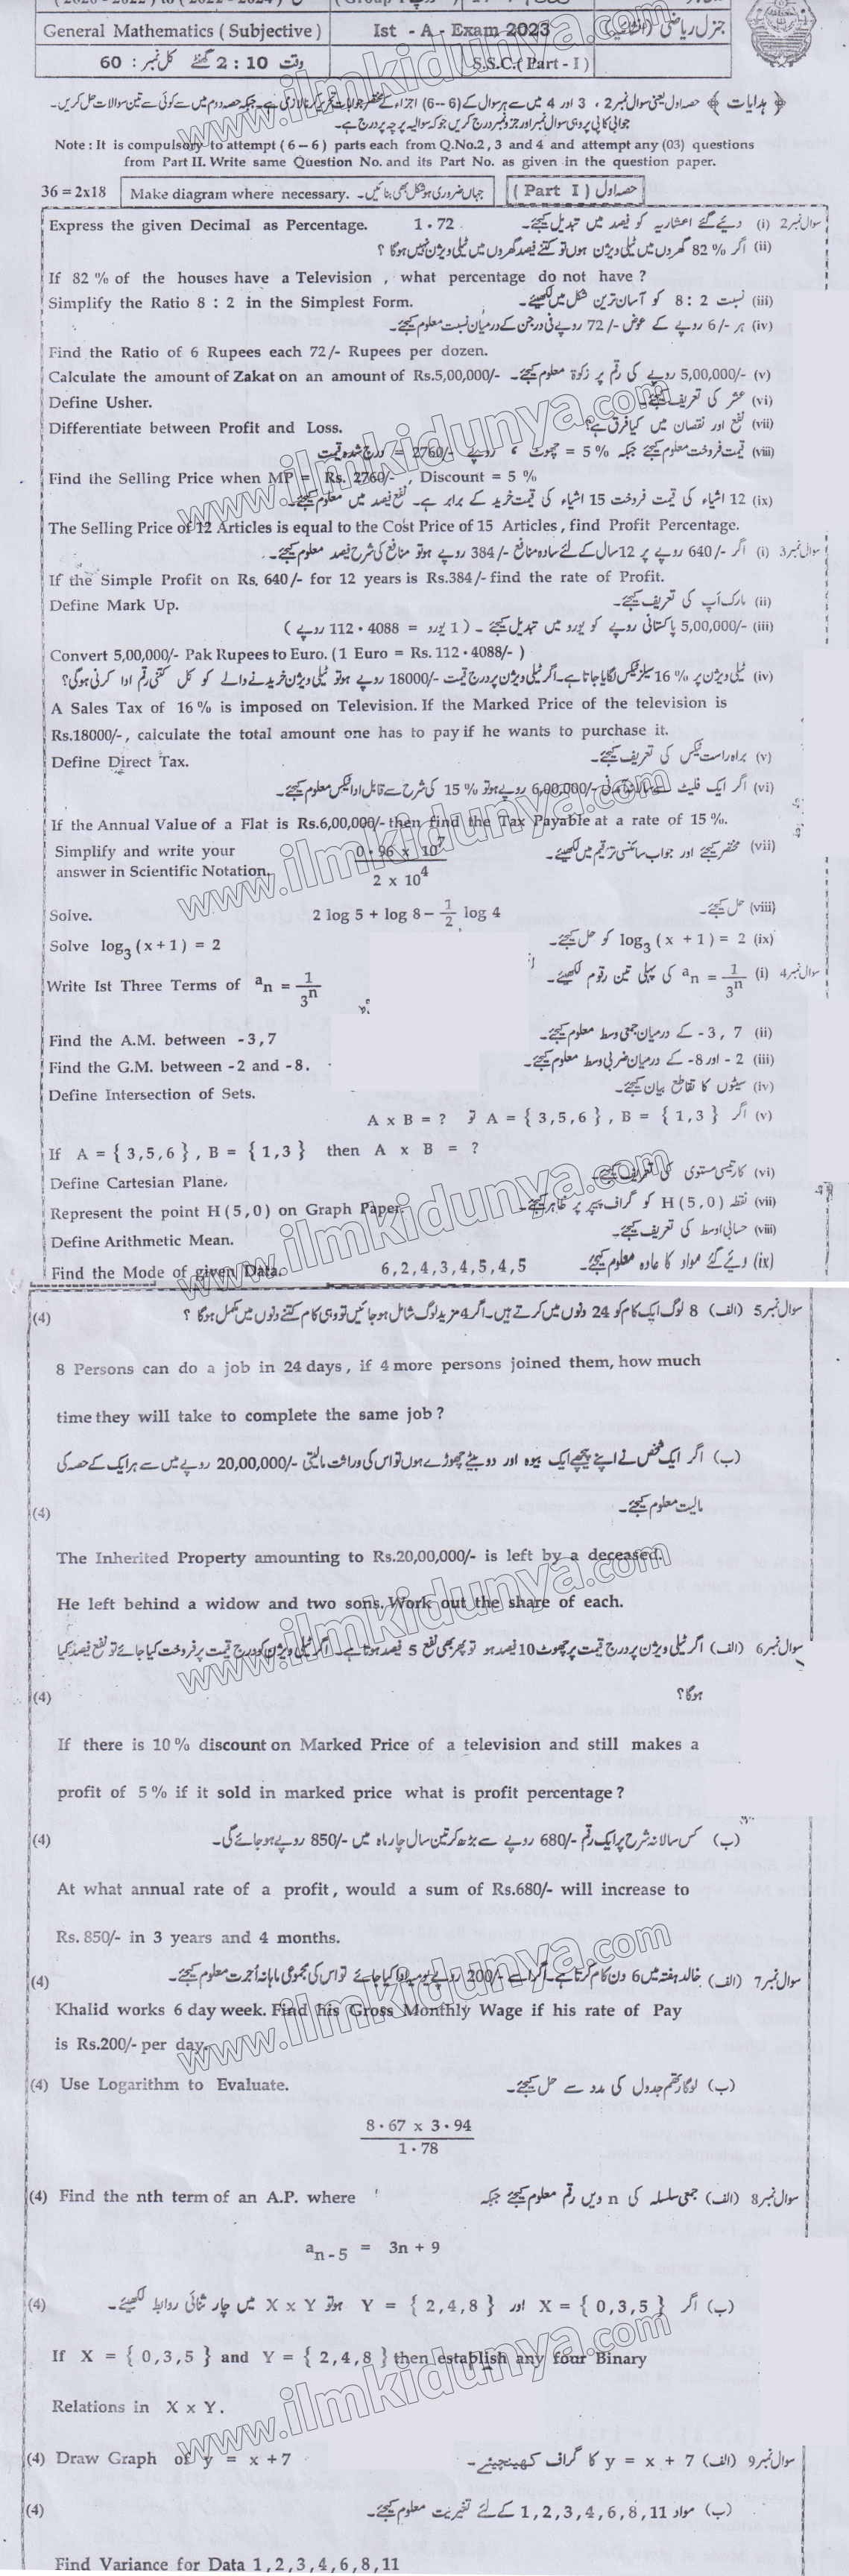 General Mathematics ( Subjective )
Ist - A - Exam 2023
جنرل ریاضی (انشائیہ)
وقت 2 : 10 گھنٹے کل نمبر : 60
S.S.C.( Part - I )
﴿ ہدایات ﴾ حصہ اول یعنی سوال نمبر 2 ، 3 اور 4 میں سے ہر سوال کے (6--6) اجزاء کے مختصر جوابات تحریر کرنا لازمی ہے۔ جبکہ حصہ دوم میں سے کوئی سے تین سوالات حل کریں۔
جوابی کاپی پر وہی سوال نمبر اور جز و نمبر درج کریں جو کہ سوالیہ پرچہ پر درج ہے۔
Note : It is compulsory to attempt ( 6 – 6 ) parts each from Q.No.2 , 3 and 4 and attempt any (03) questions
from Part II. Write same Question No. and its Part No. as given in the question paper.
36 = 2x18 Make diagram where necessary. جہاں ضروری ہو شکل بھی بنائیں۔ ( Part I ) حصہ اول
Express the given Decimal as Percentage. 1 · 72 سوال نمبر 2 (i) دیئے گئے اعشاریہ کو فیصد میں تبدیل کیجئے۔
(ii) اگر % 82 گھروں میں ٹیلی ویژن ہوں تو کتنے فیصد گھروں میں ٹیلی ویژن نہیں ہوگا ؟
If 82 % of the houses have a Television , what percentage do not have ?
Simplify the Ratio 8 : 2 in the Simplest Form. (iii) نسبت 2 : 8 کو آسان ترین شکل میں لکھیئے۔
(iv) ہر -/6 روپے کے عوض -/72 روپے فی درجن کے درمیان نسبت معلوم کیجئے۔
Find the Ratio of 6 Rupees each 72/- Rupees per dozen.
Calculate the amount of Zakat on an amount of Rs.5,00,000/- (v) -/5,00,000 روپے کی رقم پر زکوٰۃ معلوم کیجئے۔
Define Usher. (vi) عشر کی تعریف کیجئے۔
Differentiate between Profit and Loss. (vii) نفع اور نقصان میں کیا فرق ہے؟
(viii) قیمت فروخت معلوم کیجئے جبکہ % 5 = چھوٹ ، روپے -/2760 = درج شدہ قیمت
Find the Selling Price when MP = Rs. 2760/- , Discount = 5 %
(ix) 12 اشیاء کی قیمت فروخت 15 اشیاء کی قیمت خرید کے برابر ہے۔ نفع فیصد میں معلوم کیجئے۔
The Selling Price of 12 Articles is equal to the Cost Price of 15 Articles , find Profit Percentage.
سوال نمبر 3 (i) اگر -/640 روپے پر 12 سال کے لئے سادہ منافع -/384 روپے ہو تو منافع کی شرح فیصد معلوم کیجئے۔
If the Simple Profit on Rs. 640/- for 12 years is Rs.384/- find the rate of Profit.
Define Mark Up. (ii) مارک اَپ کی تعریف کیجئے۔
(iii) -/5,00,000 پاکستانی روپے کو یورو میں تبدیل کیجئے ۔ ( 1 یورو = 112·4088 روپے )
Convert 5,00,000/- Pak Rupees to Euro. ( 1 Euro = Rs. 112·4088/- )
(iv) ٹیلی ویژن پر % 16 سیلز ٹیکس لگایا جاتا ہے۔ اگر ٹیلی ویژن پر درج قیمت -/18000 روپے ہو تو ٹیلی ویژن خریدنے والے کو کل کتنی رقم ادا کرنی ہوگی؟
A Sales Tax of 16 % is imposed on Television. If the Marked Price of the television is
Rs.18000/- , calculate the total amount one has to pay if he wants to purchase it.
Define Direct Tax. (v) براہ راست ٹیکس کی تعریف کیجئے۔
(vi) اگر ایک فلیٹ کی سالانہ آمدنی -/6,00,000 روپے ہو تو % 15 کی شرح سے قابل ادا ٹیکس معلوم کیجئے۔
If the Annual Value of a Flat is Rs.6,00,000/- then find the Tax Payable at a rate of 15 %.
Simplify and write your 0·96 x 10⁷ (vii) مختصر کیجئے اور جواب سائنسی ترقیم میں لکھیئے۔
answer in Scientific Notation. 2 x 10⁴
Solve. 2 log 5 + log 8 – 1/2 log 4 (viii) حل کیجئے۔
Solve log₃ ( x + 1 ) = 2 (ix) log₃ ( x + 1 ) = 2 کو حل کیجئے۔
Write Ist Three Terms of aₙ = 1/3ⁿ سوال نمبر 4 (i) aₙ = 1/3ⁿ کی پہلی تین رقوم لکھیئے۔
Find the A.M. between - 3 , 7 (ii) 7 , 3 - کے درمیان جمعی وسط معلوم کیجئے۔
Find the G.M. between -2 and -8 . (iii) 2 - اور 8- کے درمیان ضربی وسط معلوم کیجئے۔
Define Intersection of Sets. (iv) سیٹوں کا تقاطع بیان کیجئے۔
(v) اگر A = { 3,5,6 } , B = { 1,3 } تو A x B = ?
If A = { 3,5,6 } , B = { 1,3 } then A x B = ?
Define Cartesian Plane. (vi) کارتیسی مستوی کی تعریف کیجئے۔
Represent the point H ( 5 , 0 ) on Graph Paper. (vii) نقطہ H ( 5 , 0 ) کو گراف پیپر پر ظاہر کیجئے۔
Define Arithmetic Mean. (viii) حسابی اوسط کی تعریف کیجئے۔
Find the Mode of given Data. 6 , 2 , 4 , 3 , 4 , 5 , 4 , 5 (ix) دیئے گئے مواد کا عادہ معلوم کیجئے۔
(4) سوال نمبر 5 (الف) 8 لوگ ایک کام کو 24 دنوں میں کرتے ہیں۔ اگر 4 مزید لوگ شامل ہو جائیں تو وہی کام کتنے دنوں میں مکمل ہوگا ؟
8 Persons can do a job in 24 days , if 4 more persons joined them, how much
time they will take to complete the same job ?
(ب) اگر ایک شخص نے اپنے پیچھے ایک بیوہ اور دو بیٹے چھوڑے ہوں تو اس کی وراثت مالیتی -/20,00,000 روپے میں سے ہر ایک کے حصہ کی
(4) مالیت معلوم کیجئے۔
The Inherited Property amounting to Rs.20,00,000/- is left by a deceased.
He left behind a widow and two sons. Work out the share of each.
سوال نمبر 6 (الف) اگر ٹیلی ویژن پر درج قیمت پر چھوٹ 10 فیصد ہو تو پھر بھی نفع 5 فیصد ہوتا ہے۔ اگر ٹیلی ویژن کو درج قیمت پر فروخت کیا جائے تو نفع فیصد کیا
(4) ہوگا؟
If there is 10 % discount on Marked Price of a television and still makes a
profit of 5 % if it sold in marked price what is profit percentage ?
(4) (ب) کس سالانہ شرح پر ایک رقم -/680 روپے سے بڑھ کر تین سال چار ماہ میں -/850 روپے ہو جائے گی۔
At what annual rate of a profit , would a sum of Rs.680/- will increase to
Rs. 850/- in 3 years and 4 months.
(4) سوال نمبر 7 (الف) خالد ہفتہ میں 6 دن کام کرتا ہے۔ اگر اسے -/200 روپے یومیہ ادا کیا جائے تو اس کی مجموعی ماہانہ اُجرت معلوم کیجئے۔
Khalid works 6 day week. Find his Gross Monthly Wage if his rate of Pay
is Rs.200/- per day.
(4) Use Logarithm to Evaluate. (ب) لوگارتھم جدول کی مدد سے حل کیجئے۔
8 · 67 x 3 · 94
1 · 78
(4) Find the nth term of an A.P. where سوال نمبر 8 (الف) جمعی سلسلہ کی n ویں رقم معلوم کیجئے جبکہ
aₙ₋₅ = 3n + 9
(4) (ب) اگر X = { 0,3,5 } اور Y = { 2,4,8 } ہو تو X x Y میں چار ثنائی روابط لکھیئے۔
If X = { 0,3,5 } and Y = { 2,4,8 } then establish any four Binary
Relations in X x Y .
(4) Draw Graph of y = x + 7 سوال نمبر 9 (الف) y = x + 7 کا گراف کھینچیئے۔
(4) (ب) مواد 1,2,3,4,6,8,11 کے لئے تغیریت معلوم کیجئے۔
Find Variance for Data 1 , 2 , 3 , 4 , 6 , 8 , 11
www.ilmkidunya.com
www.ilmkidunya.com
www.ilmkidunya.com
www.ilmkidunya.com
www.ilmkidunya.com
www.ilmkidunya.com
www.ilmkidunya.com